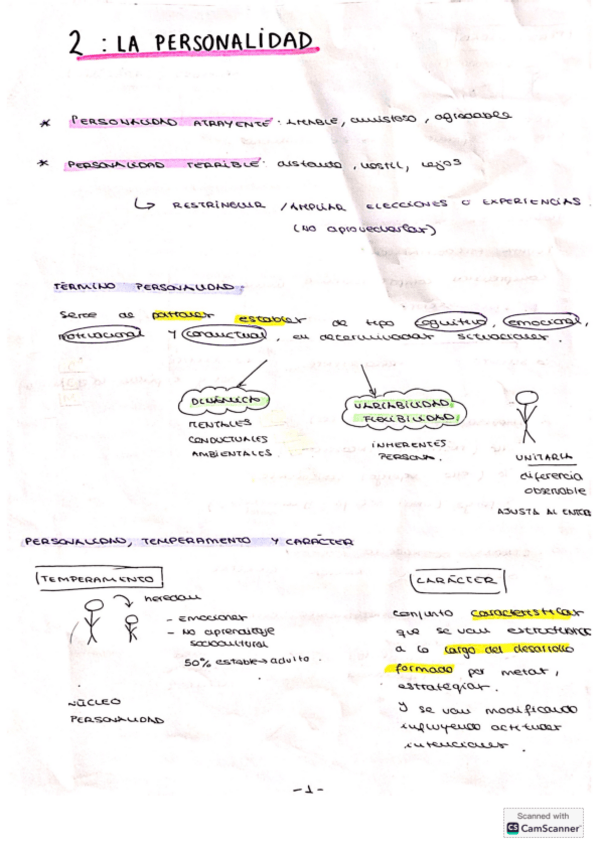 2 : LA PERSONALIDAD
* PERSONALIDAD ATRAYENTE : AMABLE, amistoso, agradable
* PERSONALIDAD TERRIBLE : distante, hostil, lejos
↳ RESTRINGUIR / AMPLIAR ELECCIONES O EXPERIENCIAS.
(no aprovecharlas)
TÉRMINO PERSONALIDAD.
Serie de patrones estables de tipo cognitivo, emocional,
motivacional y conductual, en determinadas situaciones.
DINÁMICA
MENTALES
CONDUCTUALES
AMBIENTALES
VARIABILIDAD,
FLEXIBILIDAD,
INHERENTES
PERSONA.
UNITARIA
diferencia
observable
AJUSTA AL
PERSONALIDAD, TEMPERAMENTO Y CARÁCTER
TEMPERAMENTO
heredan
- emociones
- No aprendizaje
sociocultural
50% estable → adulto.
NÚCLEO
PERSONALIDAD
CARÁCTER
conjunto características
que se van
a lo largo del desarrollo
formado por metas,
estrategias.
Y se van modificando
influyendo actitudes
intenciones.
-1-
Scanned with
CS CamScanner